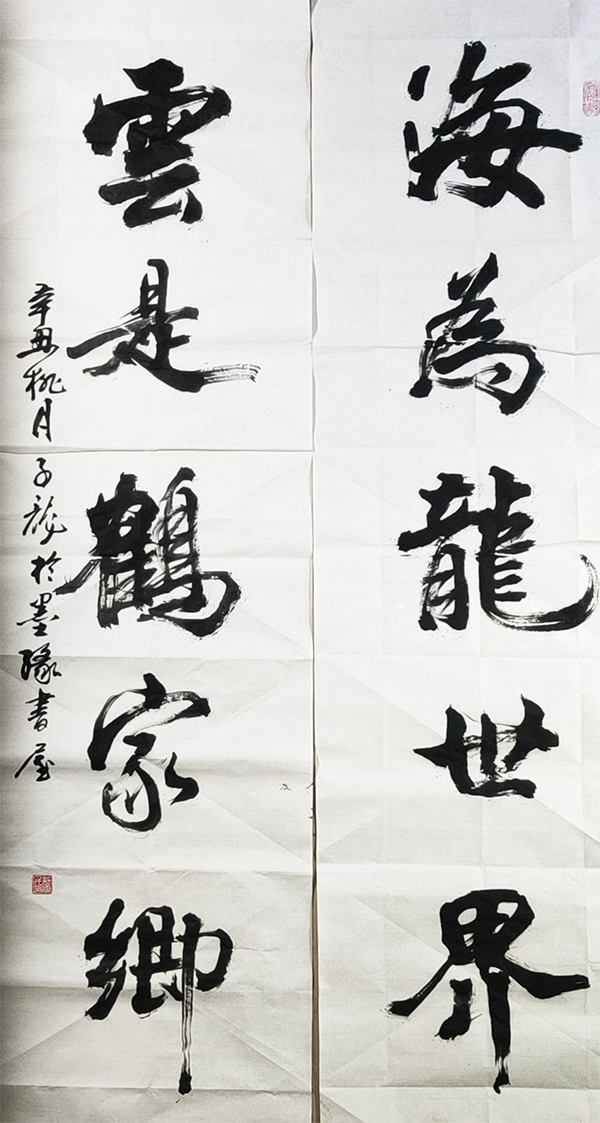 海為龍世界
雲是鶴家鄉
辛丑桃月子龍於墨緣書屋